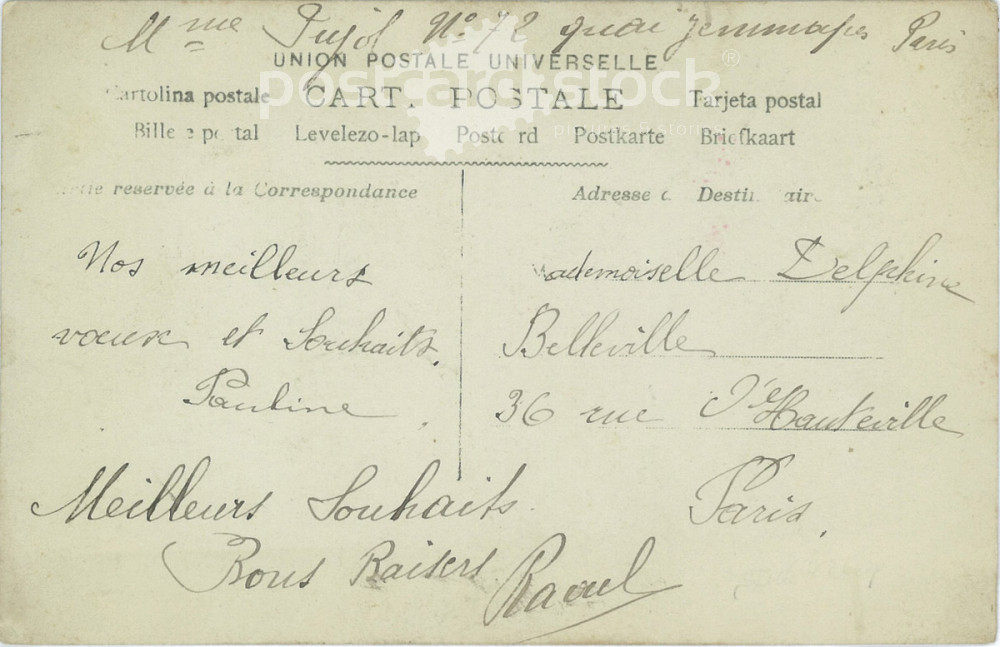 Mme Pujol No 72 quai Jemmapes Paris
UNION POSTALE UNIVERSELLE
postcardstock®
Cartolina postale CARTE POSTALE Tarjeta postal
Billet postal Levelezo-lap Postcard Postkarte Briefkaart
reservée à la Correspondance
Adresse du Destinataire
Nos meilleurs
vœux et Souhaits.
Pauline
Meilleurs Souhaits
Bons Baisers Raoul
Mademoiselle Delphine
Belleville
36 rue Hauteville
Paris.